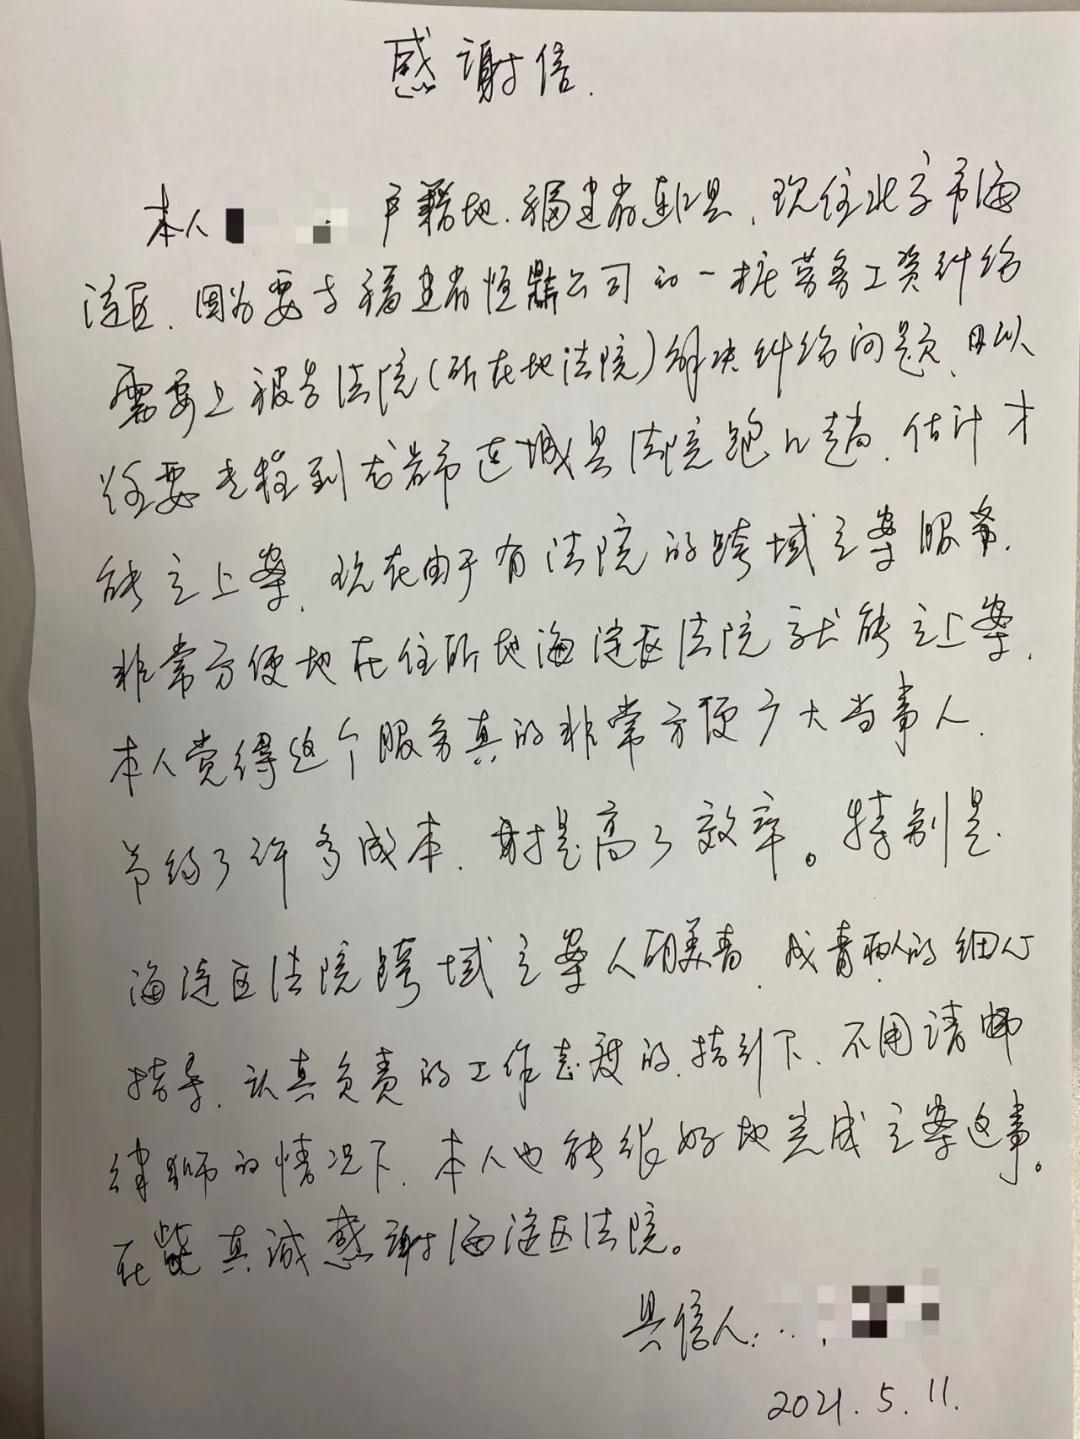 感谢信.
本人 户籍地.福建省连江县、现住北京市海
淀区、因为要与福建省恒鼎公司的一桩劳务工资纠纷
需要上被告法院(所在地法院)解决纠纷问题、所以
需要专程到龙岩市连城县法院跑几趟、估计才
能立上案、现在由于有法院的跨域立案服务.
非常方便地在住所地海淀区法院就能立上案.
本人觉得这个服务真的非常方便广大当事人.
节约了许多成本、提高了效率。特别是.
海淀区法院跨域立案人 的细心
指导、认真负责的工作态度的.指引下、不用请
律师的情况下、本人也能很好地完成立案这事。
在此真诚感谢海淀区法院。
具信人:
2021.5.11.